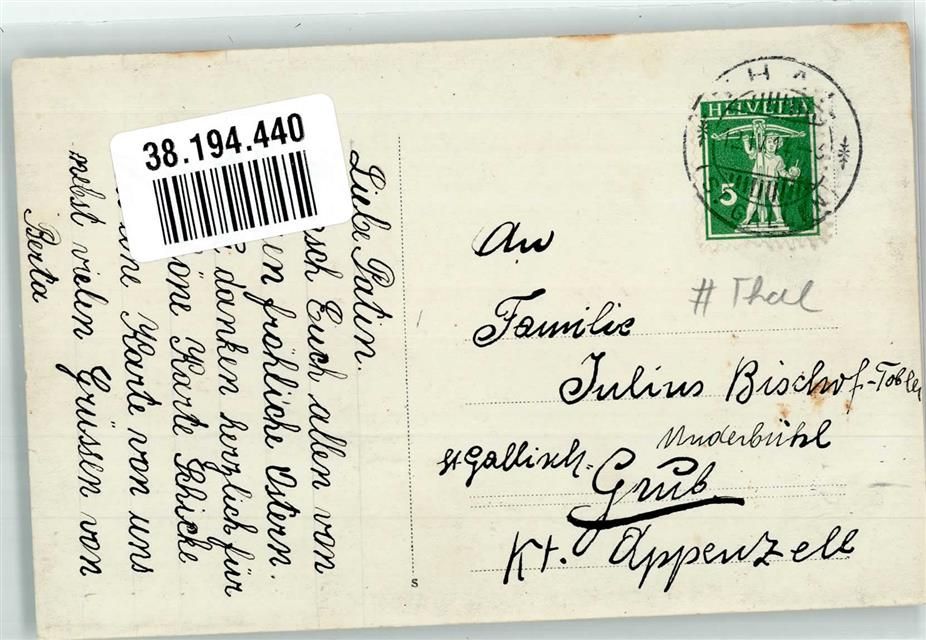 38.194.440
Liebe Patin.
sch Euch allen von
en fröhliche Ostern.
danken herzlich für
öne Karte Schicke
ine Karte von uns
nebst vielen Grüssen von
Berta
S
HELVETIA
5
# Thal
An
Familie
Julius Bischof-Tobler
Unterbühl
st Gallisch-
Grub
Kt. Appenzell